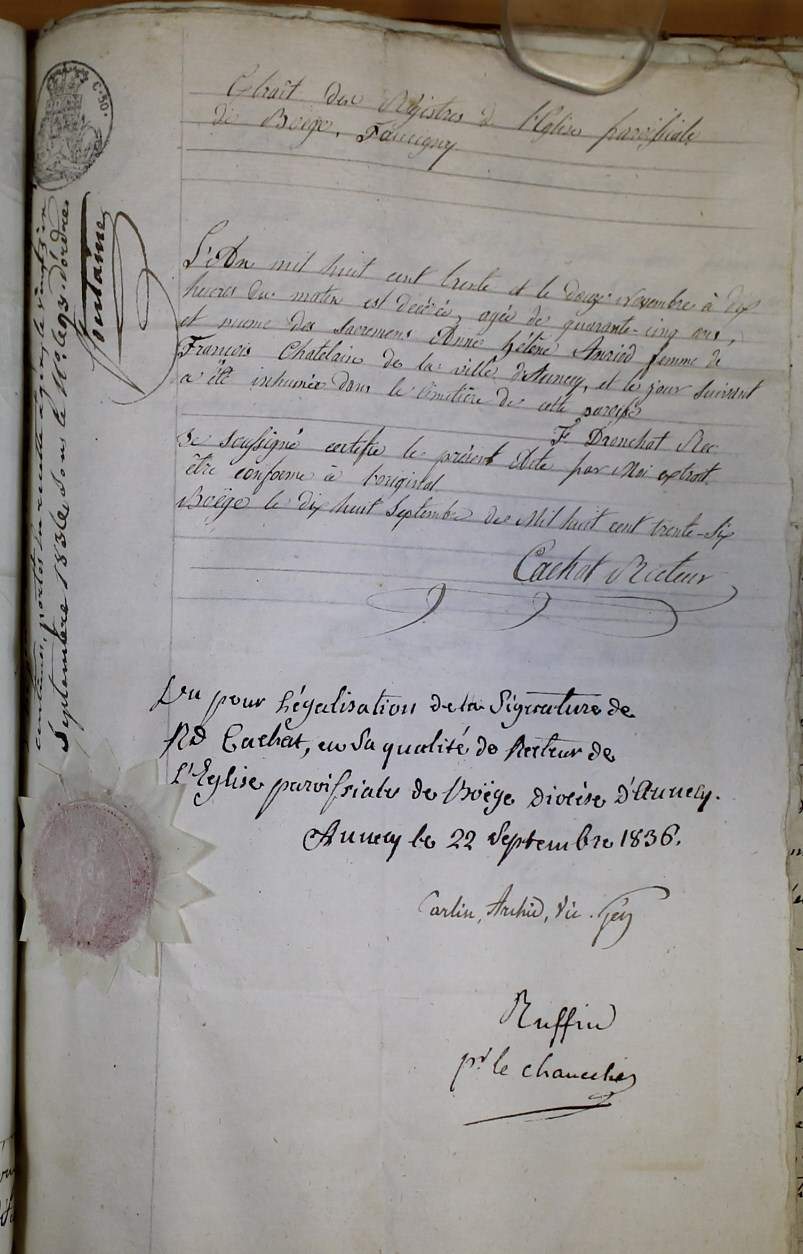 C. 50.
Extrait des Régistres de l'Eglise paroissiale
de Boège, Faucigny
L'An mil huit cent trente et le douze Novembre à dix
heures du matin est decédée, agée de quarante-cinq ans,
et munie des sacremens Anne Hélène Anriod femme de
François Chatelain de la ville d'Annecy, et le jour suivant
a été inhumée dans le cimetière de cette paroisse
Je soussigné certifie le présent Acte par Moi extrait
être conforme à l'original
Boëge le dix huit Septembre de Mil huit cent trente-six
Cachat Recteur
Septembre 1836 sous le N° d'ordre
Fontaine
Vu pour Légalisation de la Signature de
Rd Cachat, en Sa qualité de Recteur de
L'Eglise paroissiale de Boëge Diocèse D'Annecy.
Annecy le 22 Septembre 1836.
Carlin, Archid, Vic. Gén
Ruffin
pr le chancelier